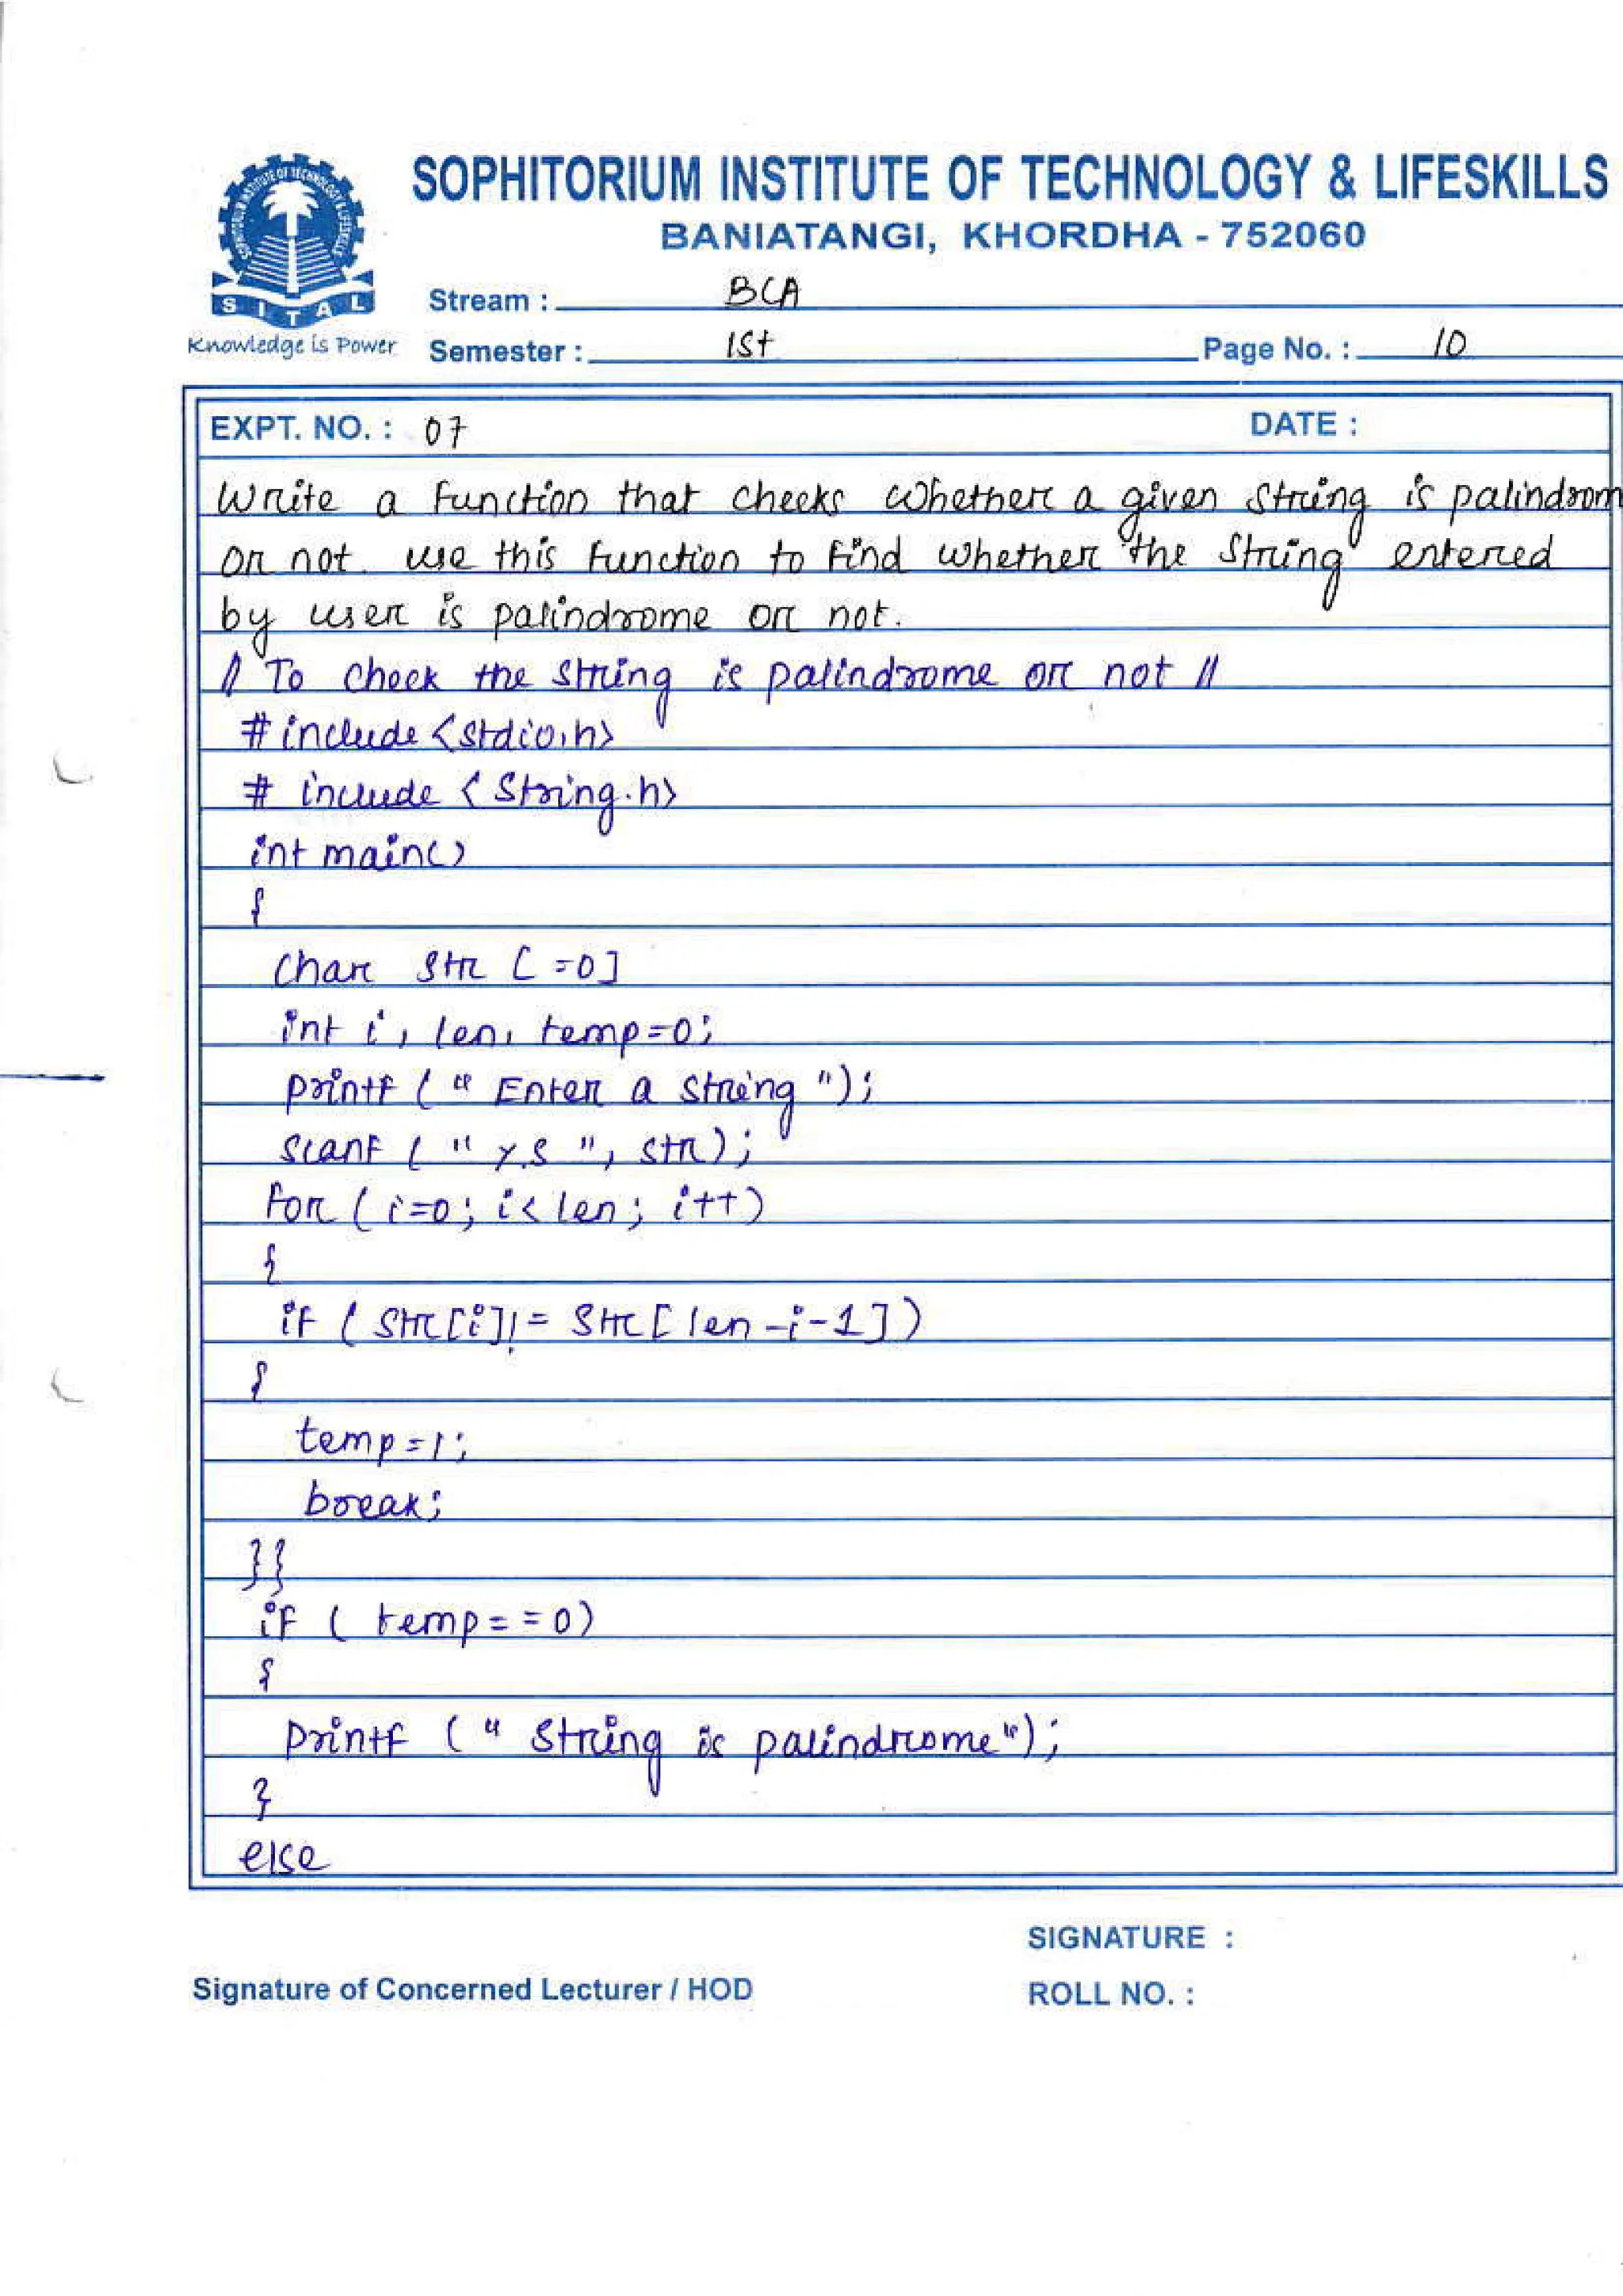 SOPHITORIUM INSTITUTE OF TECHNOLOGY & LIFESKILLS
BANIATANGI, KHORDHA - 752060
SITAL
Knowledge is Power
Stream : BCA
Semester : 1st Page No. : 10
EXPT. NO. : 07 DATE :
Write a function that checks whether a given string is palindrom
or not. use this function to find whether the string entered
by user is palindrome or not.
// To check the string is palindrome or not //
# include <stdio.h>
# include <String.h>
int main()
{
char str [=0]
int i, len, temp=0;
printf (" Enter a string ");
scanf ( " %s ", str);
for ( i=0; i< len; i++)
{
if ( str[i]!= str[ len -i-1])
{
temp=1;
break;
}}
if ( temp= =0)
{
printf ( " string is palindrome");
}
else
SIGNATURE :
Signature of Concerned Lecturer / HOD
ROLL NO. :